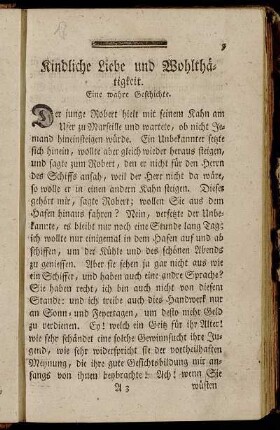 Kindliche Liebe und Wohlthä-
tigkeit.
Eine wahre Geschichte.
Der junge Robert hielt mit seinem Kahn am
Ufer zu Marseille und wartete, ob nicht Je-
mand hineinsteigen würde. Ein Unbekannter setzte
sich hinein, wollte aber gleich wieder heraus steigen,
und sagte zum Robert, den er nicht für den Herrn
des Schiffs ansah, weil der Herr nicht da wäre,
so wolle er in einen andern Kahn steigen. Dieses
gehört mir, sagte Robert; wollen Sie aus dem
Hafen hinaus fahren? Nein, versetzte der Unbe-
kannte, es bleibt nur noch eine Stunde lang Tag;
ich wollte nur einigemal in dem Hafen auf und ab
schiffen, um der Kühle und des schönen Abends
zu geniessen. Aber sie sehen ja gar nicht aus wie
ein Schiffer, und haben auch eine andre Sprache?
Sie haben recht, ich bin auch nicht von diesem
Stande: und ich treibe auch dies Handwerk nur
an Sonn- und Feyertagen, um desto mehr Geld
zu verdienen. Ey! welch ein Geitz für ihr Alter!
wie sehr schändet eine solche Gewinnsucht ihre Ju-
gend, wie sehr widerspricht sie der vortheilhaften
Meynung, die ihre gute Gesichtsbildung mir an-
fangs von ihnen beybrachte! Ach! wenn Sie
A 3 wüsten